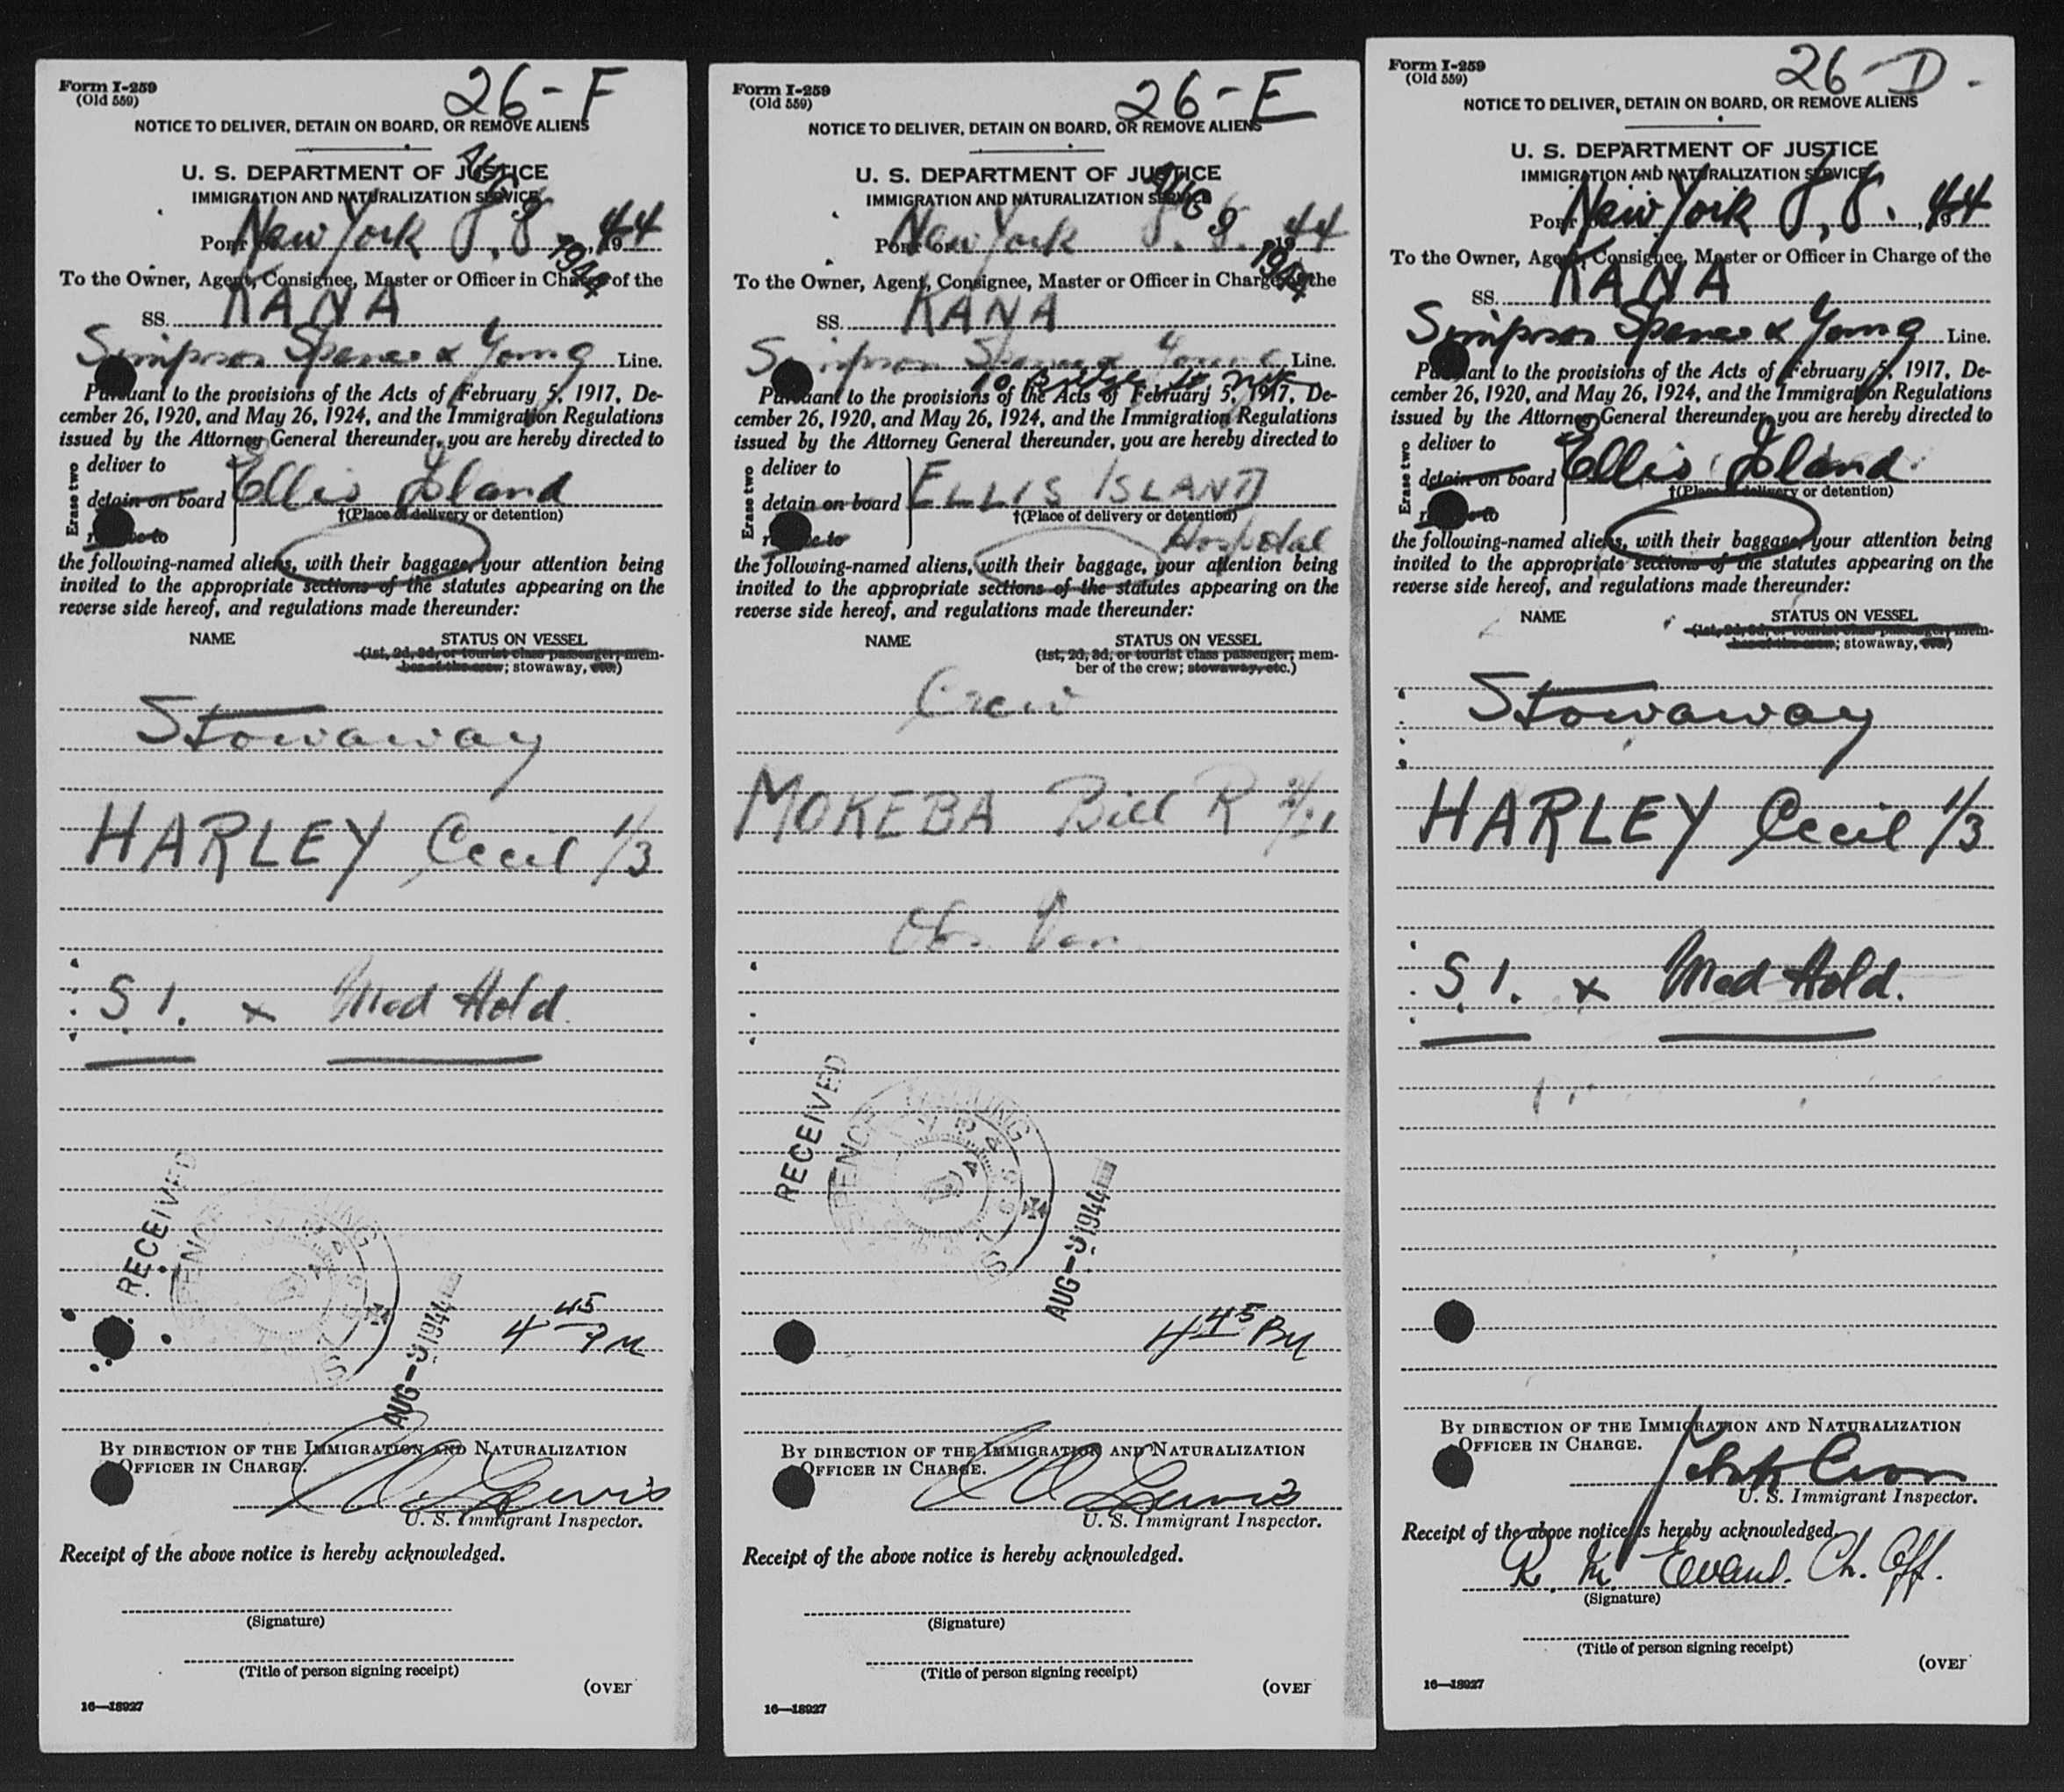 Form I-259
(Old 559)
26-F
NOTICE TO DELIVER, DETAIN ON BOARD, OR REMOVE ALIENS
U. S. DEPARTMENT OF JUSTICE
IMMIGRATION AND NATURALIZATION SERVICE
AUG 9 1944
Port of New York 8.8. 1944
To the Owner, Agent, Consignee, Master or Officer in Charge of the
SS. KANA
Simpson Spence & Young Line.
Pursuant to the provisions of the Acts of February 5, 1917, De-
cember 26, 1920, and May 26, 1924, and the Immigration Regulations
issued by the Attorney General thereunder, you are hereby directed to
Erase two
deliver to
detain on board Ellis Island
†(Place of delivery or detention)
remove to
the following-named aliens, with their baggage, your attention being
invited to the appropriate sections of the statutes appearing on the
reverse side hereof, and regulations made thereunder:
NAME STATUS ON VESSEL
(1st, 2d, 3d, or tourist class passenger; mem-
ber of the crew; stowaway, etc.)
Stowaway
HARLEY Cecil 1/3
S.I. x Med Hold.
RECEIVED
AUG-9 1944
4 45 PM
BY DIRECTION OF THE IMMIGRATION AND NATURALIZATION
OFFICER IN CHARGE.
Lewis
U. S. Immigrant Inspector.
Receipt of the above notice is hereby acknowledged.
(Signature)
(Title of person signing receipt)
(OVER
16—18927
Form I-259
(Old 559)
26-E
NOTICE TO DELIVER, DETAIN ON BOARD, OR REMOVE ALIENS
U. S. DEPARTMENT OF JUSTICE
IMMIGRATION AND NATURALIZATION SERVICE
AUG 9 1944
Port of New York 8.8. 1944
To the Owner, Agent, Consignee, Master or Officer in Charge of the
SS. KANA
Simpson Spence & Young Line.
10 Bridge St
Pursuant to the provisions of the Acts of February 5, 1917, De-
cember 26, 1920, and May 26, 1924, and the Immigration Regulations
issued by the Attorney General thereunder, you are hereby directed to
Erase two
deliver to
detain on board ELLIS ISLAND
†(Place of delivery or detention)
remove to
Hospital
the following-named aliens, with their baggage, your attention being
invited to the appropriate sections of the statutes appearing on the
reverse side hereof, and regulations made thereunder:
NAME STATUS ON VESSEL
(1st, 2d, 3d, or tourist class passenger; mem-
ber of the crew; stowaway, etc.)
Crew
MOKEBA Bill R
RECEIVED
AUG-9 1944
4 45 PM
BY DIRECTION OF THE IMMIGRATION AND NATURALIZATION
OFFICER IN CHARGE.
Lewis
U. S. Immigrant Inspector.
Receipt of the above notice is hereby acknowledged.
(Signature)
(Title of person signing receipt)
(OVER
16—18927
Form I-259
(Old 559)
26-D.
NOTICE TO DELIVER, DETAIN ON BOARD, OR REMOVE ALIENS
U. S. DEPARTMENT OF JUSTICE
IMMIGRATION AND NATURALIZATION SERVICE
Port of New York 8.8. 1944
To the Owner, Agent, Consignee, Master or Officer in Charge of the
SS. KANA
Simpson Spence & Young Line.
Pursuant to the provisions of the Acts of February 5, 1917, De-
cember 26, 1920, and May 26, 1924, and the Immigration Regulations
issued by the Attorney General thereunder, you are hereby directed to
Erase two
deliver to
detain on board Ellis Island
†(Place of delivery or detention)
remove to
the following-named aliens, with their baggage, your attention being
invited to the appropriate sections of the statutes appearing on the
reverse side hereof, and regulations made thereunder:
NAME STATUS ON VESSEL
(1st, 2d, 3d, or tourist class passenger; mem-
ber of the crew; stowaway, etc.)
Stowaway
HARLEY Cecil 1/3
S.I. x Med Hold.
BY DIRECTION OF THE IMMIGRATION AND NATURALIZATION
OFFICER IN CHARGE.
U. S. Immigrant Inspector.
Receipt of the above notice is hereby acknowledged.
R. M. Evans. Ch. Off.
(Signature)
(Title of person signing receipt)
(OVER
16—18927